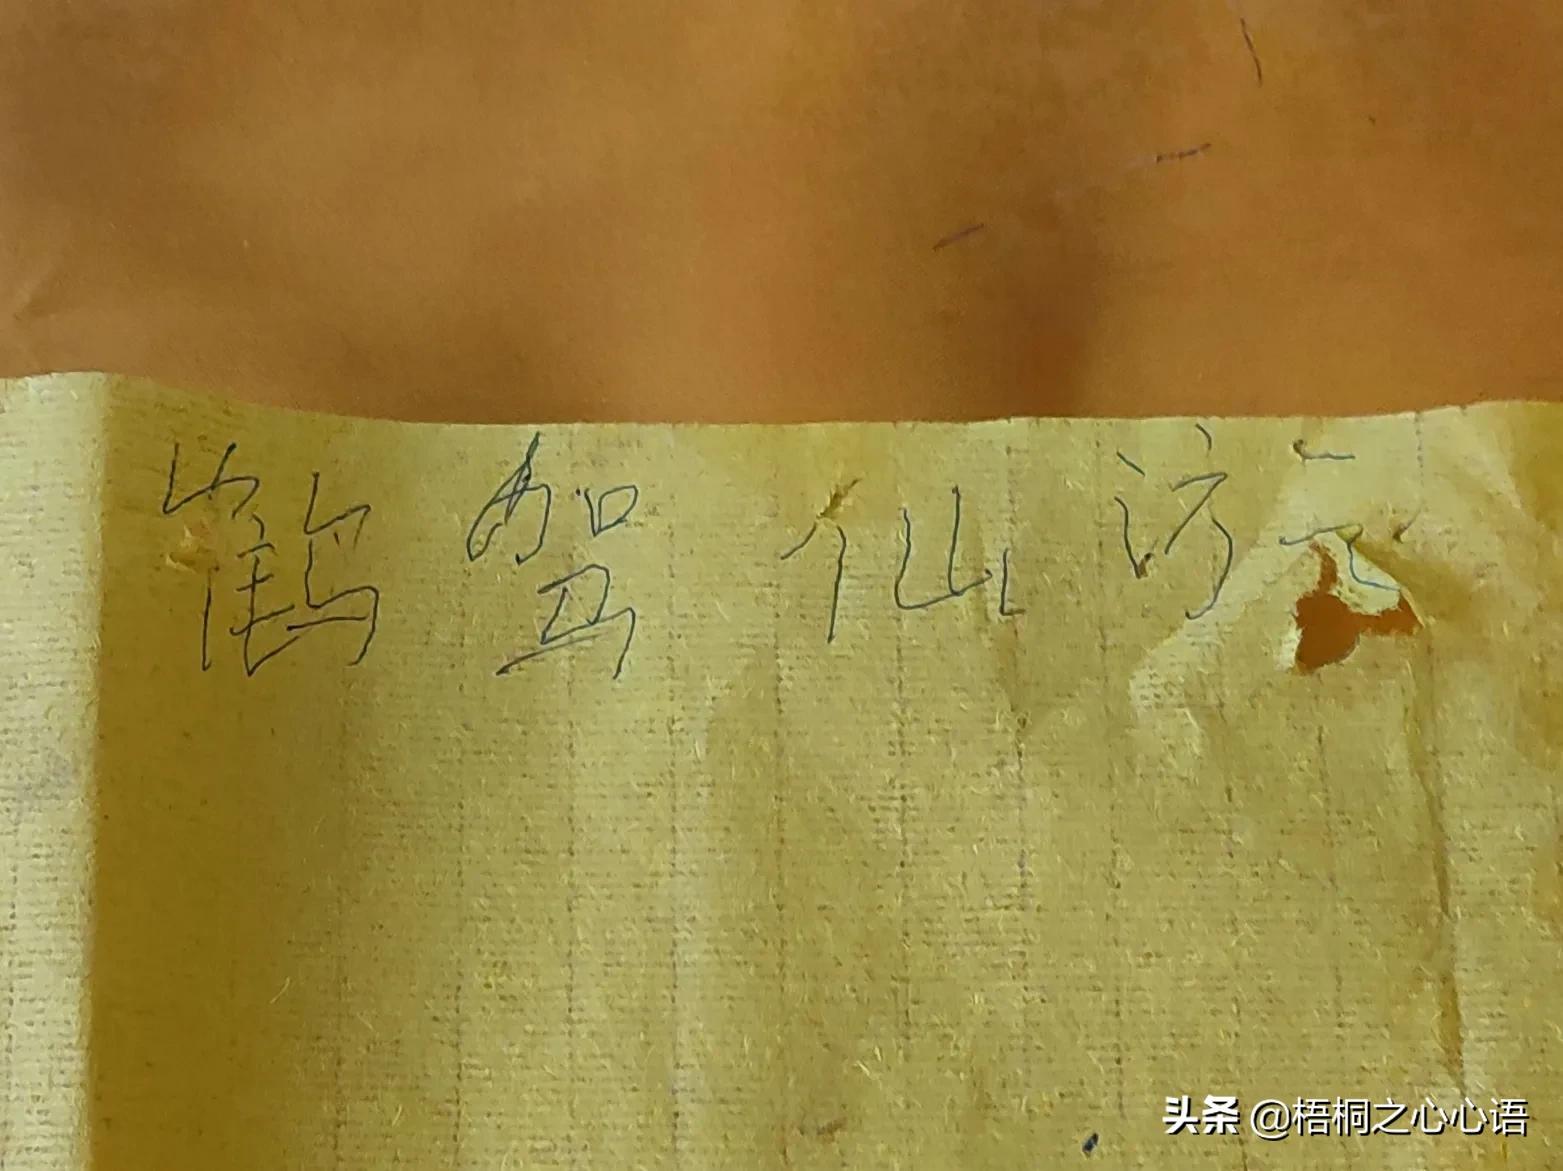 鹤驾仙访
头条 @梧桐之心心语